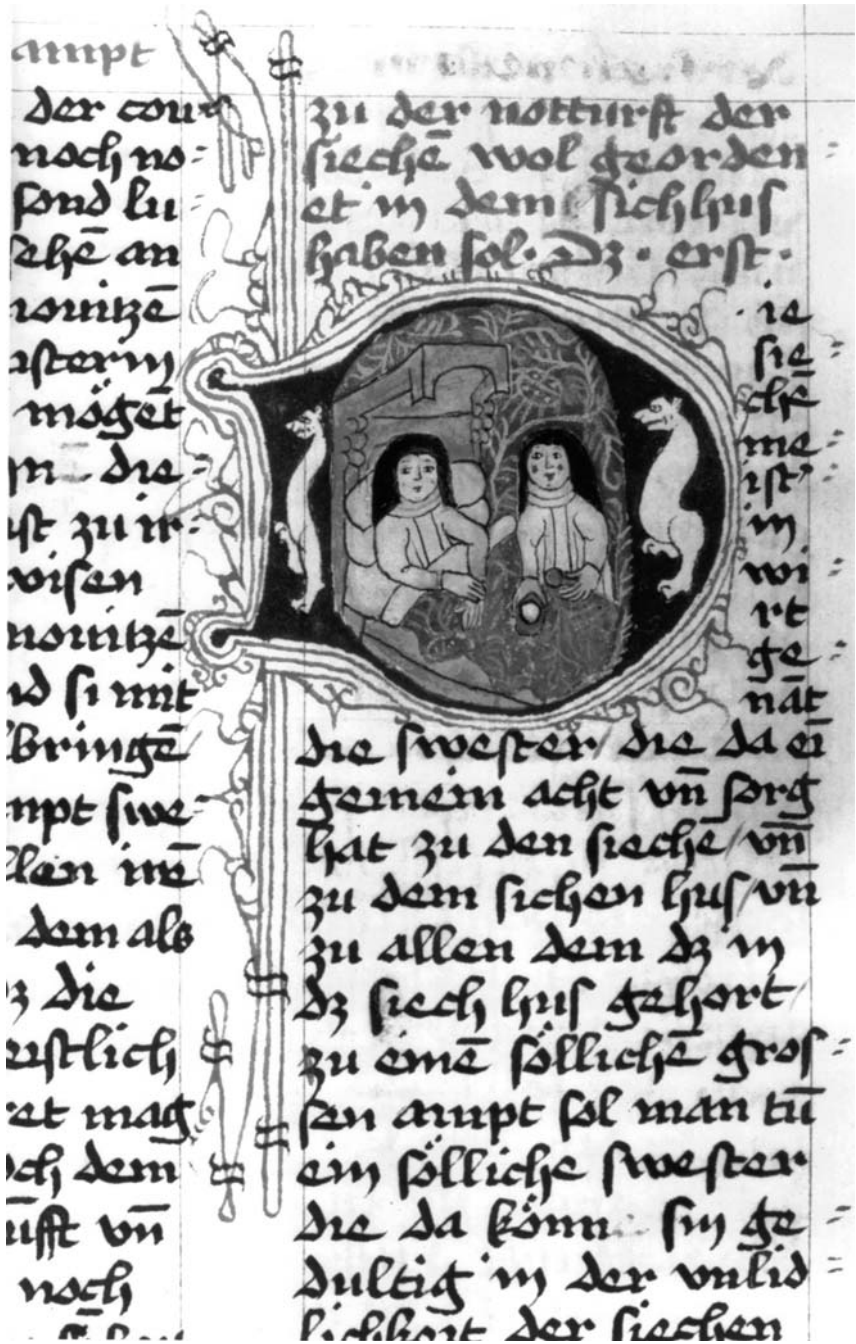 ampt
der cou
noch no⸗
sond lu⸗
sehē an
nouitzē
asterin
mögēt
yn die⸗
ist zu ir⸗
wisen
nouitzē
id si mit
lbringē
mpt swe⸗
llen inē
dem als
dz die
erstlich
ret mag
och dem
ufft vn̄
noch
zu der notturft der
siechē wol georden⸗
et in dem sichhus
haben sol· Dz · erst·
D ie
sie⸗
chē
me⸗
ist⸗
in
wi⸗
rt
ge⸗
nāt
die swester / die da eī
gemein acht vn̄ sorg
hat zu den sieche / vn̄
zu dem sichen hus / vn̄
zu allen dem dz in
dz siech hus gehort /
zu einē söllichē gros⸗
sen ampt sol man tu̅
ein sölliche swester
die da könn sin ge⸗
dultig in der vnlid⸗
lichkeit der siechen